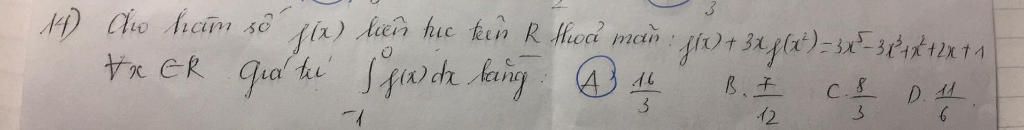 14) Cho hàm số f(x) liên tục trên R thoả mãn: f(x) + 3x f(x²) = 3x⁵ - 3x³ + x² + 2x + 1
∀x ∈ R Giá trị ∫₋₁⁰ f(x) dx bằng: A. 16/3 B. 7/12 C. 8/3 D. 11/6.